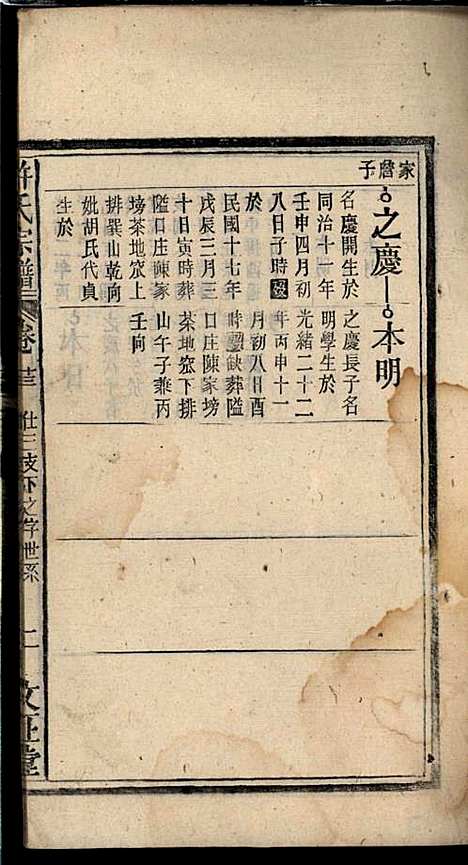 家詹子
之慶—本明
名慶開生於
同治十一年
壬申四月初
八日子時歿
於
民國十七年
戊辰三月三
十日寅時葬
隘口庄陳家
塝茶地窊上
排巽山乾向
妣胡氏代貞
生於
之慶長子名
明學生於
光緒二十二
年丙申十一
月初八日酉
時歿缺葬隘
口庄陳家塝
茶地窊下排
山午子兼丙
壬向
許氏宗譜
卷
仕三支下之字世系
二
敦正堂